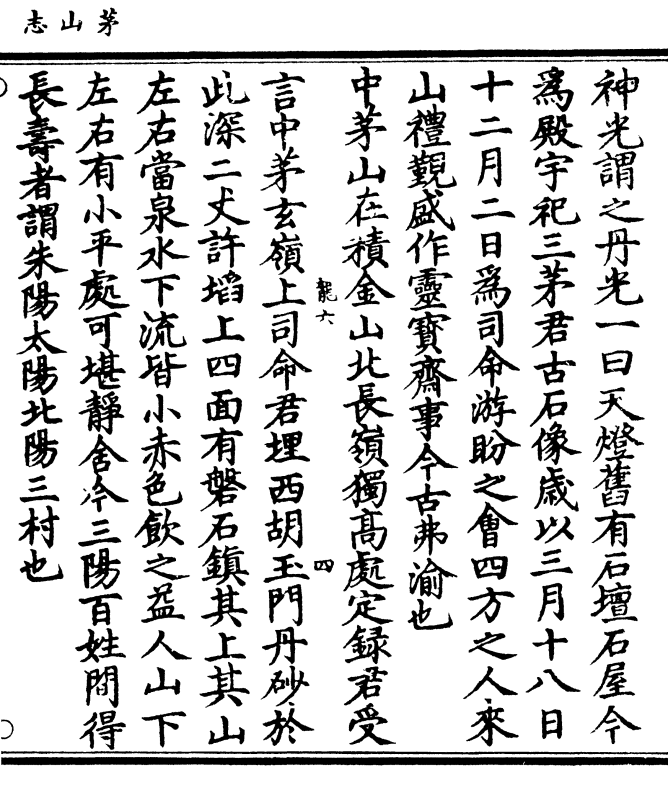 茅山志
神光謂之丹光一曰天燈舊有石壇石屋今
爲殿宇祀三茅君古石像歲以三月十八日
十二月二日爲司命游盼之會四方之人來
山禮觀盛作靈寶齋事今古弗渝也
中茅山在積金山北長嶺獨高處定録君受
言中茅玄嶺上司命君埋西胡玉門丹砂於
龍六
四
此深二丈許埳上四面有磐石鎮其上其山
左右當泉水下流皆小赤色飲之益人山下
左右有小平處可堪靜舍今三陽百姓間得
長壽者謂朱陽太陽北陽三村也